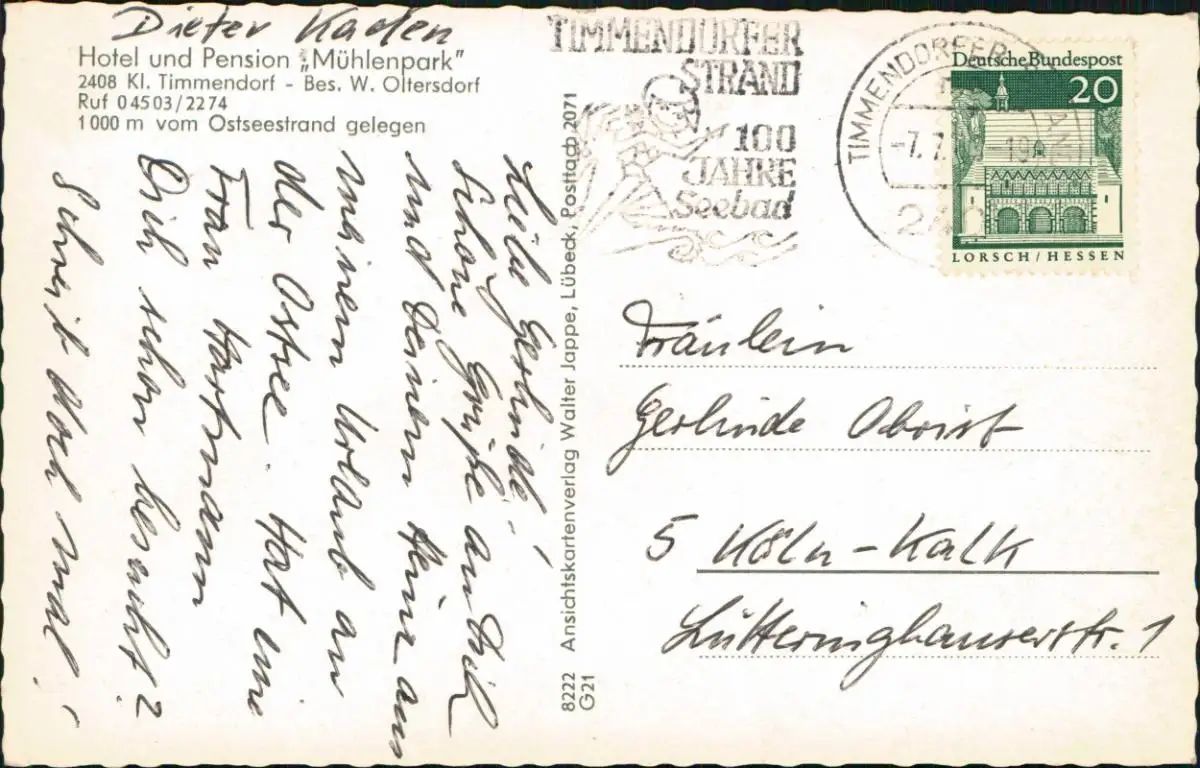 Dieter Kaden
Hotel und Pension „Mühlenpark"
2408 Kl. Timmendorf - Bes. W. Oltersdorf
Ruf 04503/2274
1000 m vom Ostseestrand gelegen
Gerlinde!
Schöne Grüße an Dich
und Deinen Heinz aus
meinem Urlaub an
der Ostsee. Hat eine
Frau Hartmann
Dich schon besucht?
Schreib doch mal!
8222 Ansichtskartenverlag Walter Jappe, Lübeck, Postfach 2071
G21
TIMMENDORFER
STRAND
100
JAHRE
Seebad
TIMMENDORFER
-7.7
24
Deutsche Bundespost
20
LORSCH/HESSEN
Fräulein
Gerlinde Obrist
5 Köln-Kalk
Lütteringhauserstr. 1